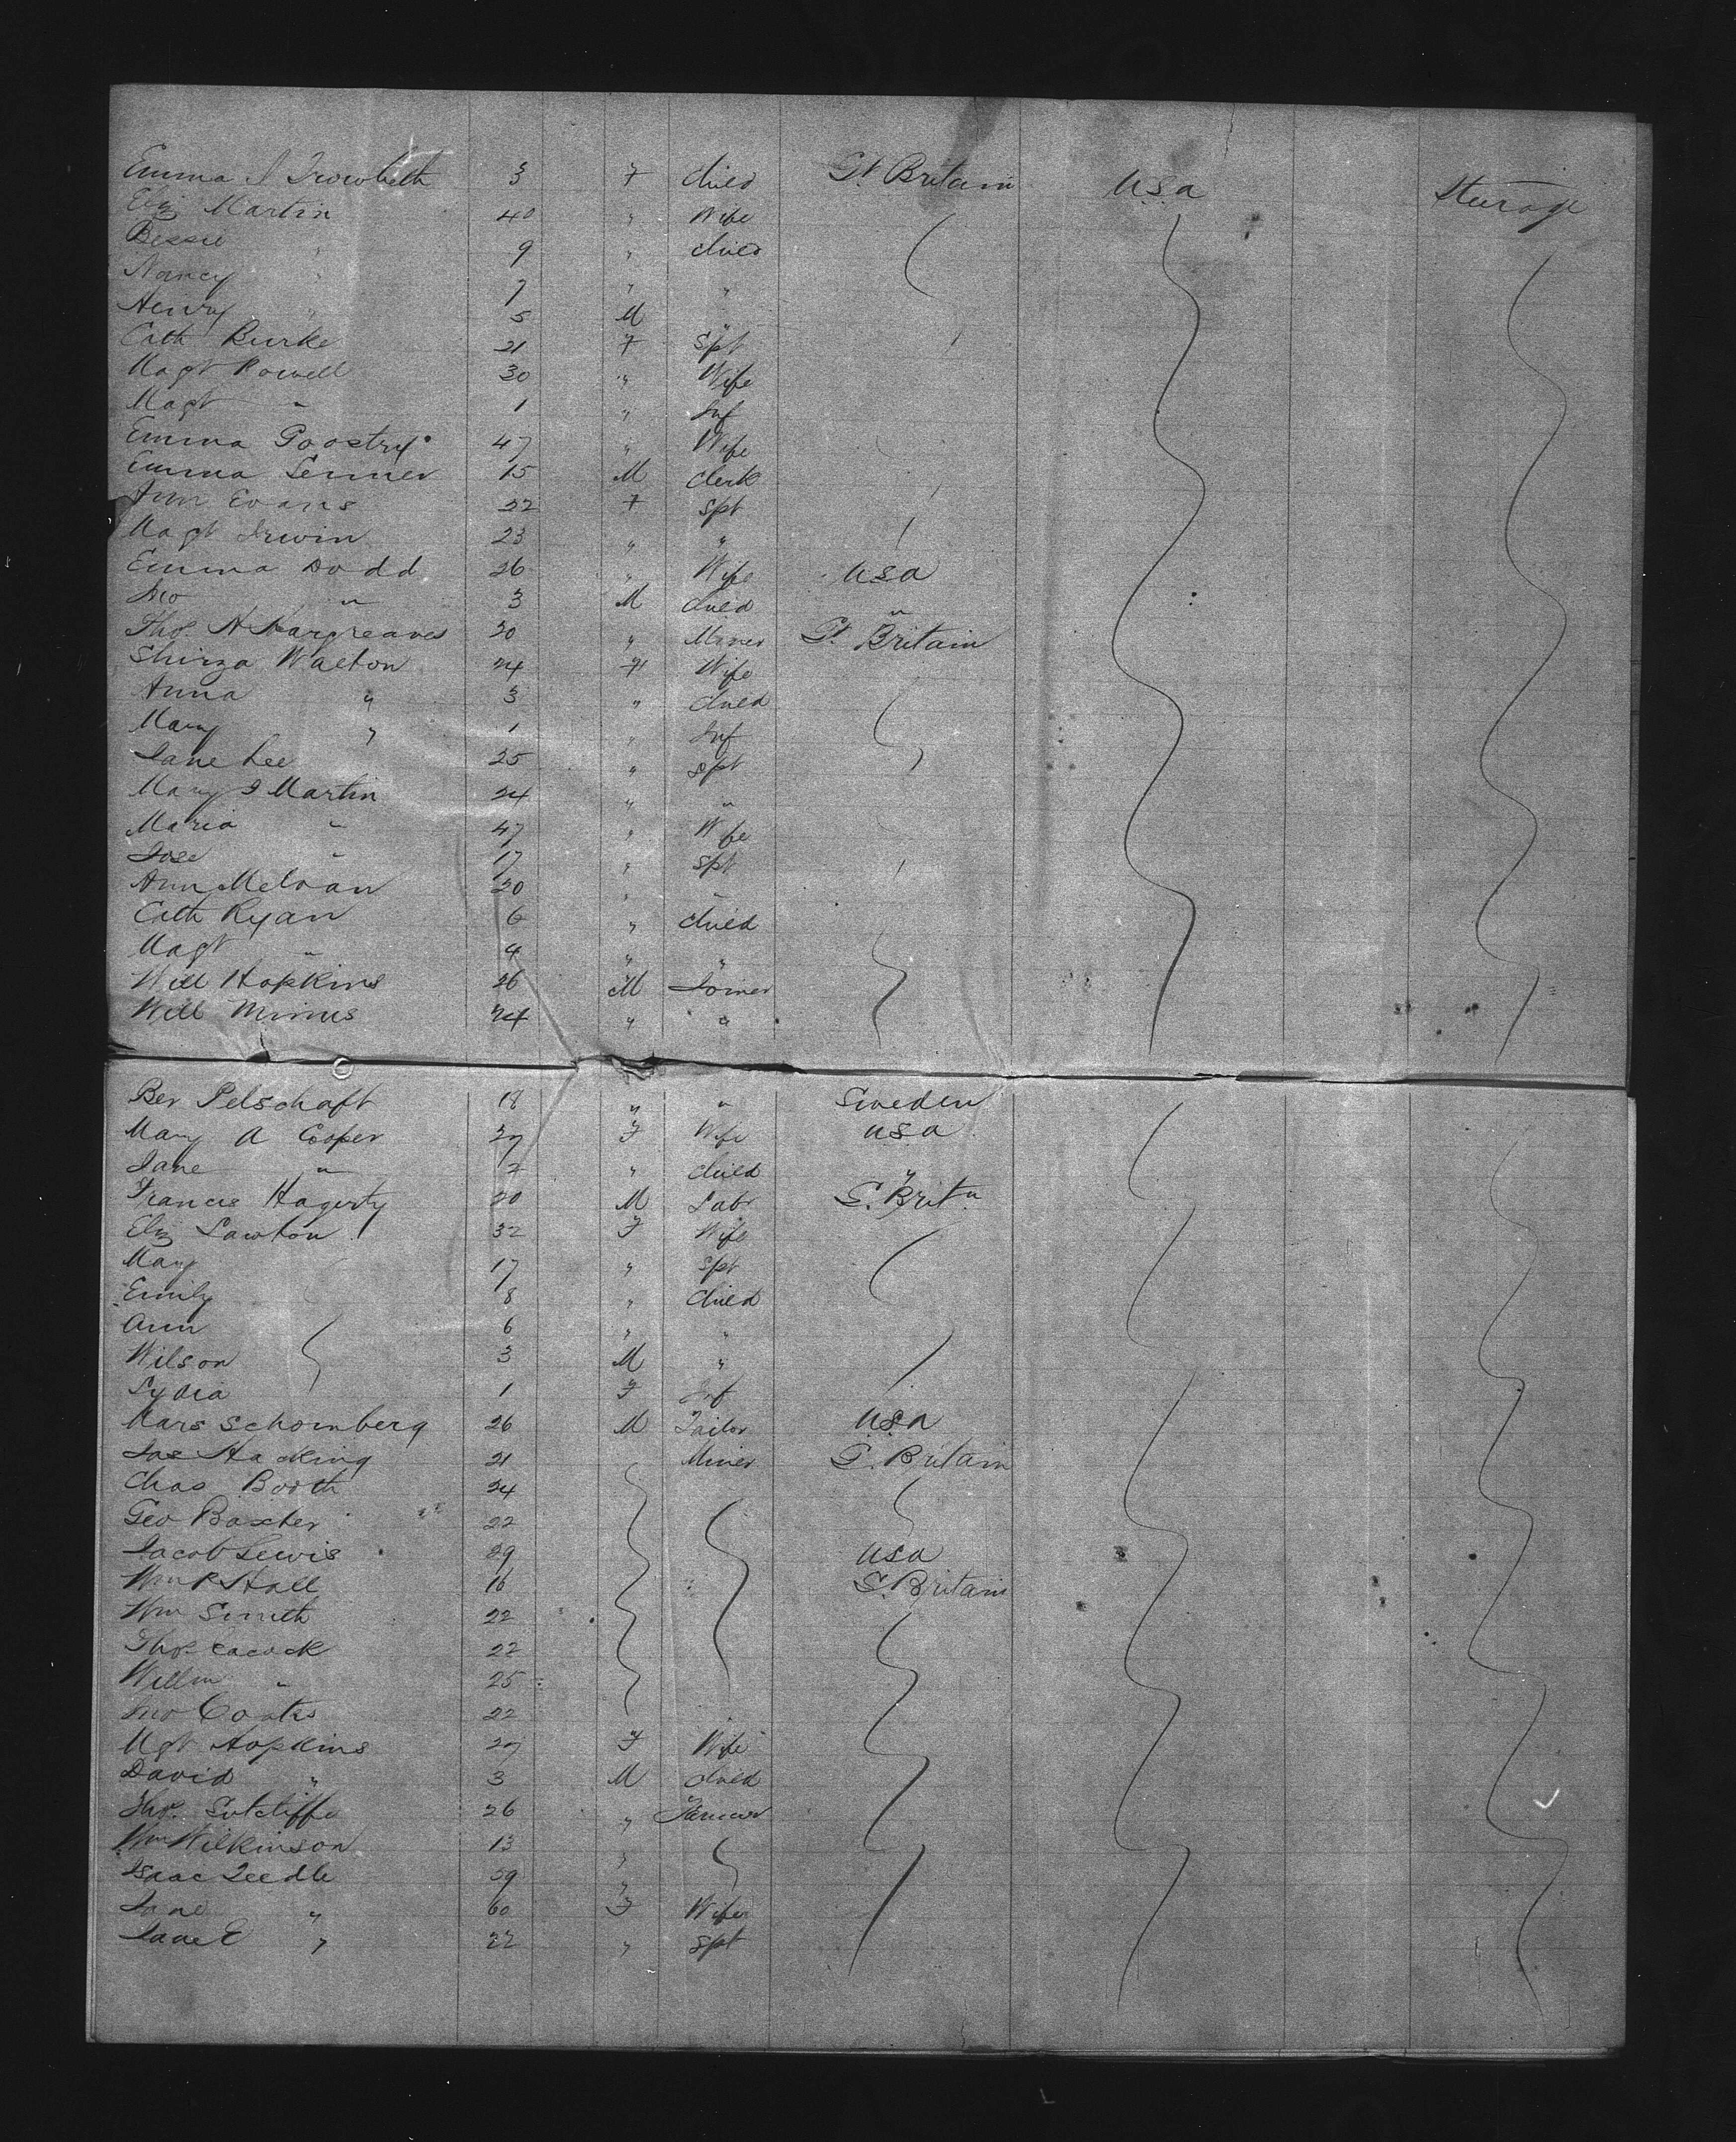 Emma J Trowbeth 3 F child Gt Britain USA Steerage
Eliz Martin 40 " Wife
Bessie " 9 " child
Nancy " 7 " "
Henry " 5 M "
Cath Burke 21 F Spt
Magt Powell 30 " Wife
Magt " 1 " Inf
Emma 47 " Wife
Emma 15 M Clerk
Ann Evans 22 F Spt
Magt Irwin 23 " "
Emma Dodd 26 " Wife USA
Jno " 3 M child "
Thos H Hargreaves 20 " Miner Gt Britain
Shirza Walton 24 F Wife
Anna " 3 " child
Mary " 1 " Inf
Jane Lee 25 " Spt
Mary J Martin 24 " "
Maria " 47 " Wife
" 17 " Spt
Ann 20 " "
Cath Ryan 6 " child
Magt " 4 " "
Will Hopkins 26 M Joiner
Will 24 " "
Ber Pelschaft 18 " " Sweden
Mary A Cooper 27 F Wife USA
Jane " 2 " child "
Francis Hagerty 20 M Labr G. Britn
Eliz Lawton 32 F Wife
Mary 17 " Spt
Emily 8 " child
Ann 6 " "
Wilson 3 M "
Lydia 1 F Inf
Mars Schomberg 26 M Tailor USA
Jas Hacking 21 Miner G. Britain
Chas Booth 24
Geo Baxter 22
Jacob Lewis 29 USA
Wm R Hall 16 G. Britain
Wm Smith 22
Thos 22
Willm " 25
Jno Coates 22
Mgt Hopkins 27 F Wife
David " 3 M child
Thos Sutcliffe 26 " Farmer
Wm Wilkinson 13 "
Isaac 59 "
Jane " 60 F Wife
Jane E " 22 " Spt